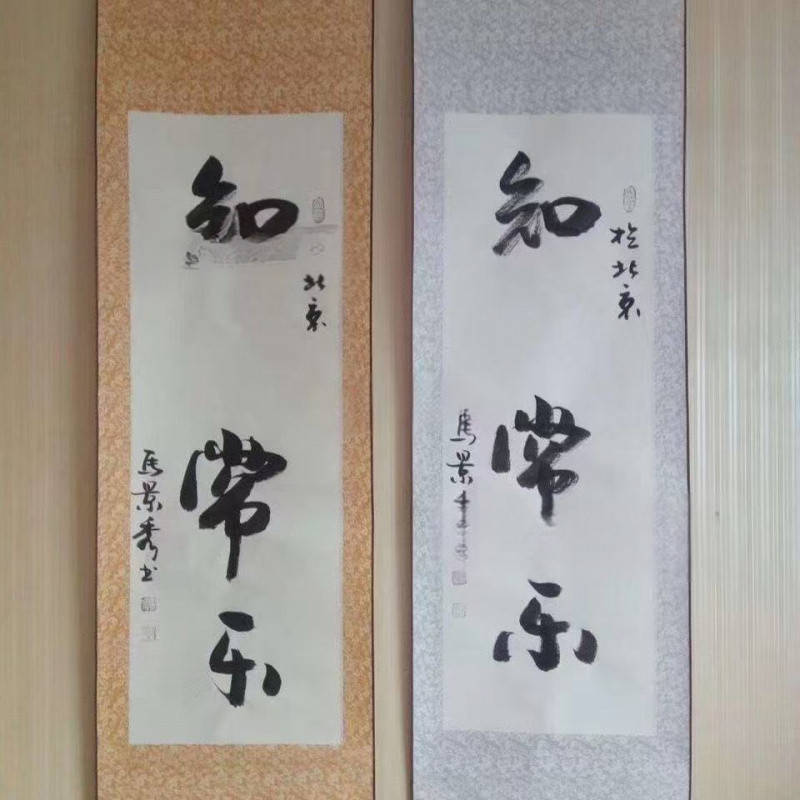 北京
知常乐
馬景秀书
於北京
知常乐
馬景